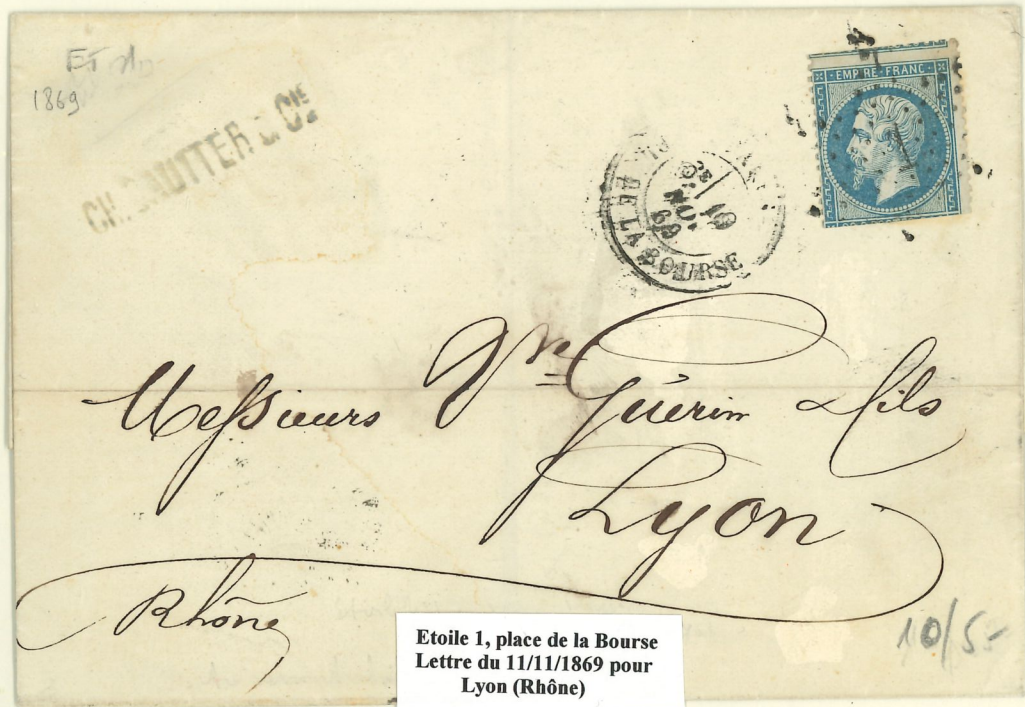 1869
CH. SAUTTER & Cie
EMPIRE FRANC
1
DE LA BOURSE
NOV
69
Messieurs Vve Guérin & fils
Lyon
Rhône
10/5-
Etoile 1, place de la Bourse
Lettre du 11/11/1869 pour
Lyon (Rhône)